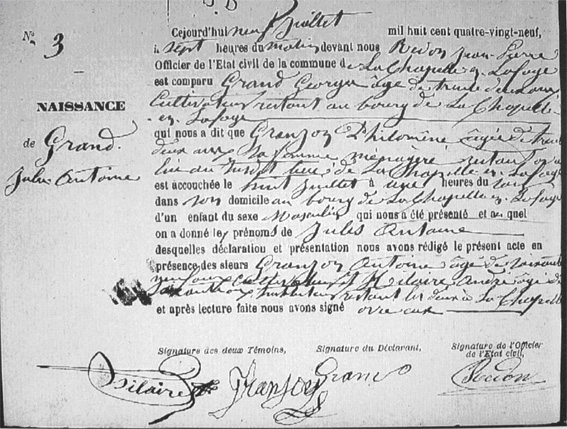 N° 3
NAISSANCE
de Grand
Jules Antoine
Cejourd'hui neuf juillet mil huit cent quatre-vingt-neuf,
à sept heures du matin devant nous Redon Jean Pierre
Officier de l'Etat civil de la commune de La Chapelle en Lafaye
est comparu Grand Georges âgé de trente deux ans
Cultivateur restant au bourg de La Chapelle
en Lafaye
qui nous a dit que Granjon Philomène âgée de trente
deux ans sa femme ménagère restant
au susdit lieu de La Chapelle en Lafaye
est accouchée le huit juillet à heures du soir
dans son domicile au bourg de La Chapelle en Lafaye
d'un enfant du sexe Masculin qui nous a été présenté et auquel
on a donné les prénoms de Jules Antoine
desquelles déclaration et présentation nous avons rédigé le présent acte en
présence des sieurs Granjon Antoine âgé de
cultivateur et Hilaire André âgé de
instituteur restant les deux à La Chapelle
et après lecture faite nous avons signé avec eux
Signature des deux Témoins, Signature du Déclarant, Signature de l'Officier de l'Etat civil,
Hilaire Granjon Grand Redon